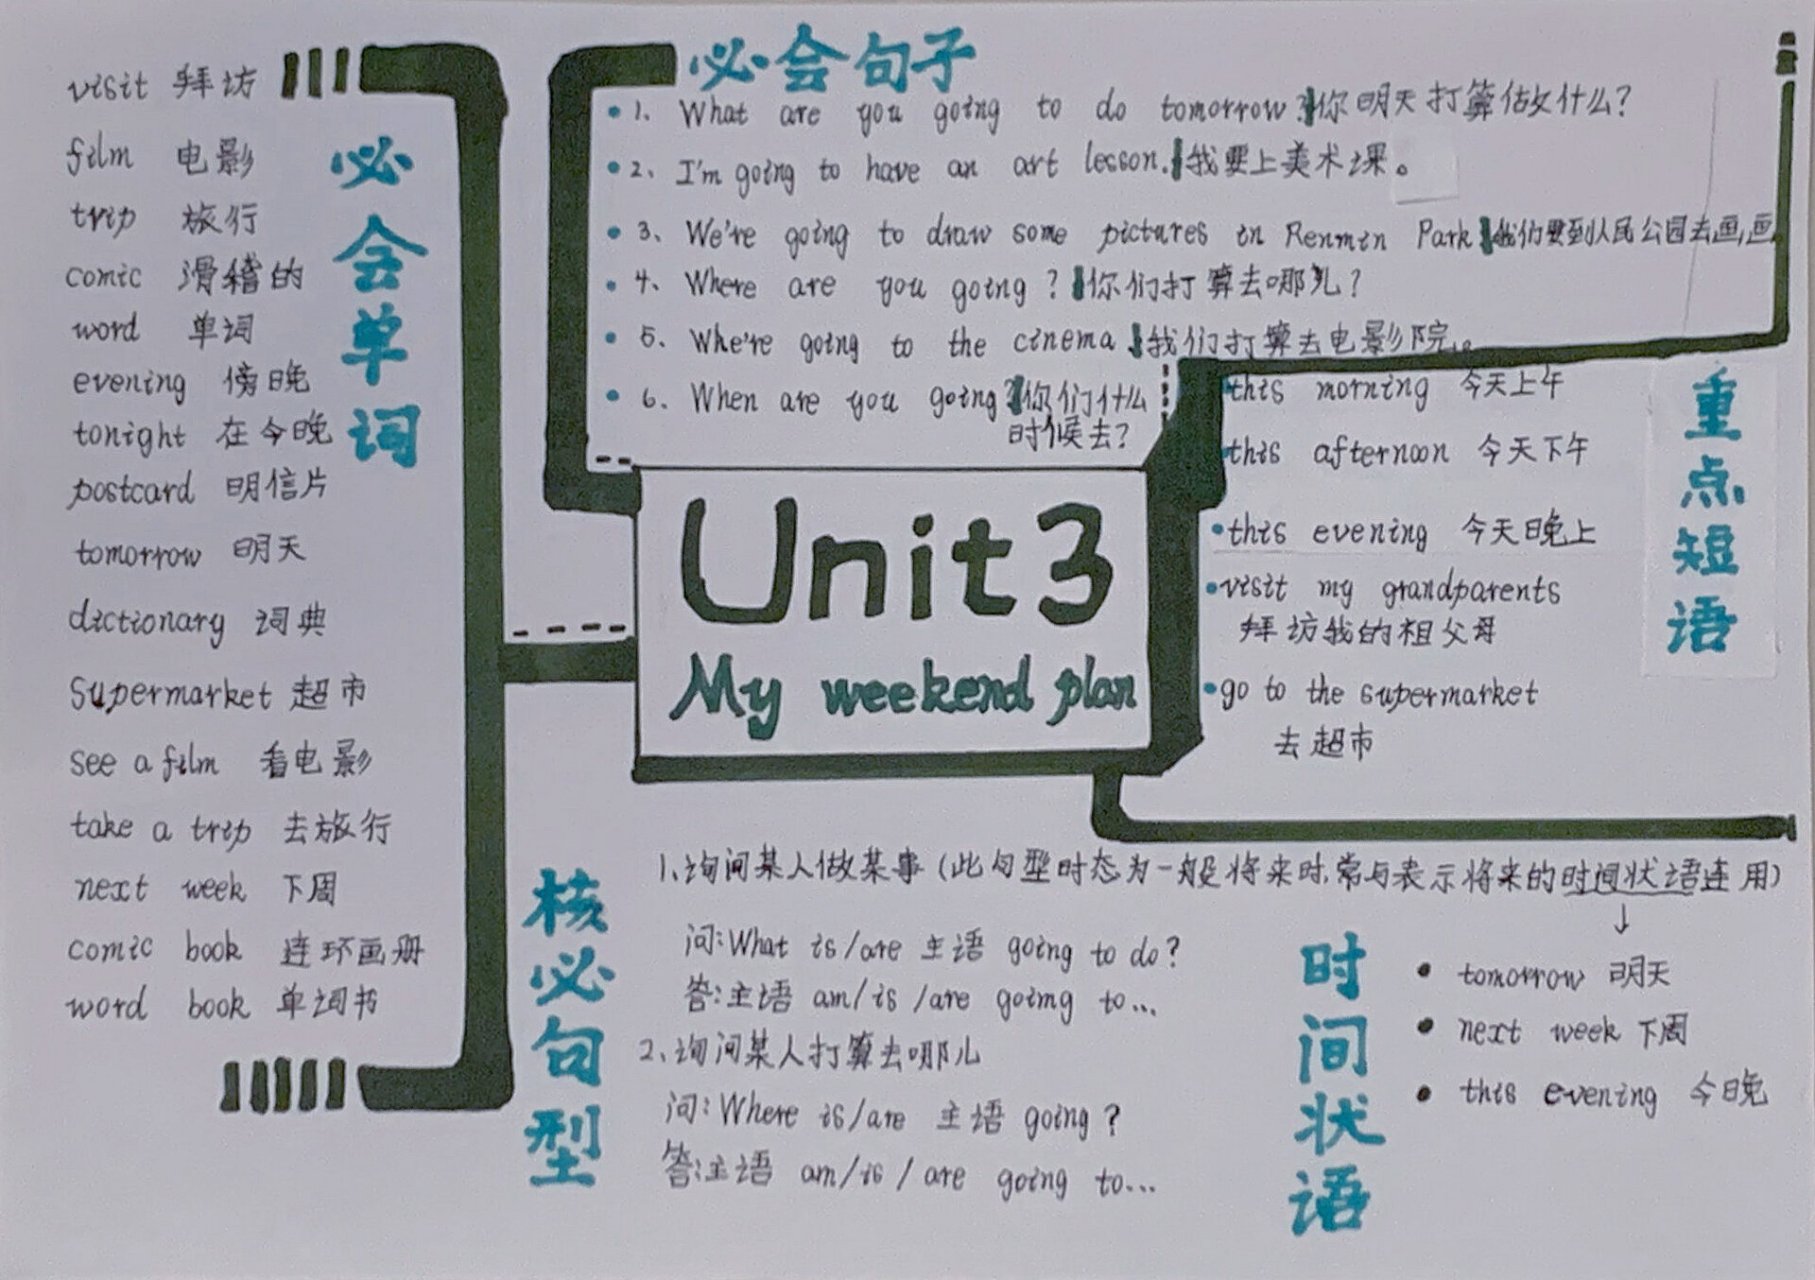 visit 拜访
film 电影
trip 旅行
comic 滑稽的
word 单词
evening 傍晚
tonight 在今晚
postcard 明信片
tomorrow 明天
dictionary 词典
Supermarket 超市
see a film 看电影
take a trip 去旅行
next week 下周
comic book 连环画册
word book 单词书
必会单词
必会句子
1、What are you going to do tomorrow?你明天打算做什么?
2、I'm going to have an art lesson.我要上美术课。
3、We're going to draw some pictures in Renmin Park 我们要到人民公园去画画
4、Where are you going? 你们打算去哪儿?
5、Whe're going to the cinema 我们打算去电影院。
6、When are you going?你们什么
时候去?
Unit 3
My weekend plan
重点短语
this morning 今天上午
this afternoon 今天下午
this evening 今天晚上
visit my grandparents
拜访我的祖父母
go to the supermarket
去超市
核必句型
1、询问某人做某事(此句型时态为一般将来时,常与表示将来的时间状语连用)
↓
问:What is/are 主语 going to do?
答:主语 am/is /are goimg to...
2、询问某人打算去哪儿
问:Where is/are 主语 going?
答:主语 am/is / are going to...
时间状语
tomorrow 明天
next week 下周
this evening 今晚